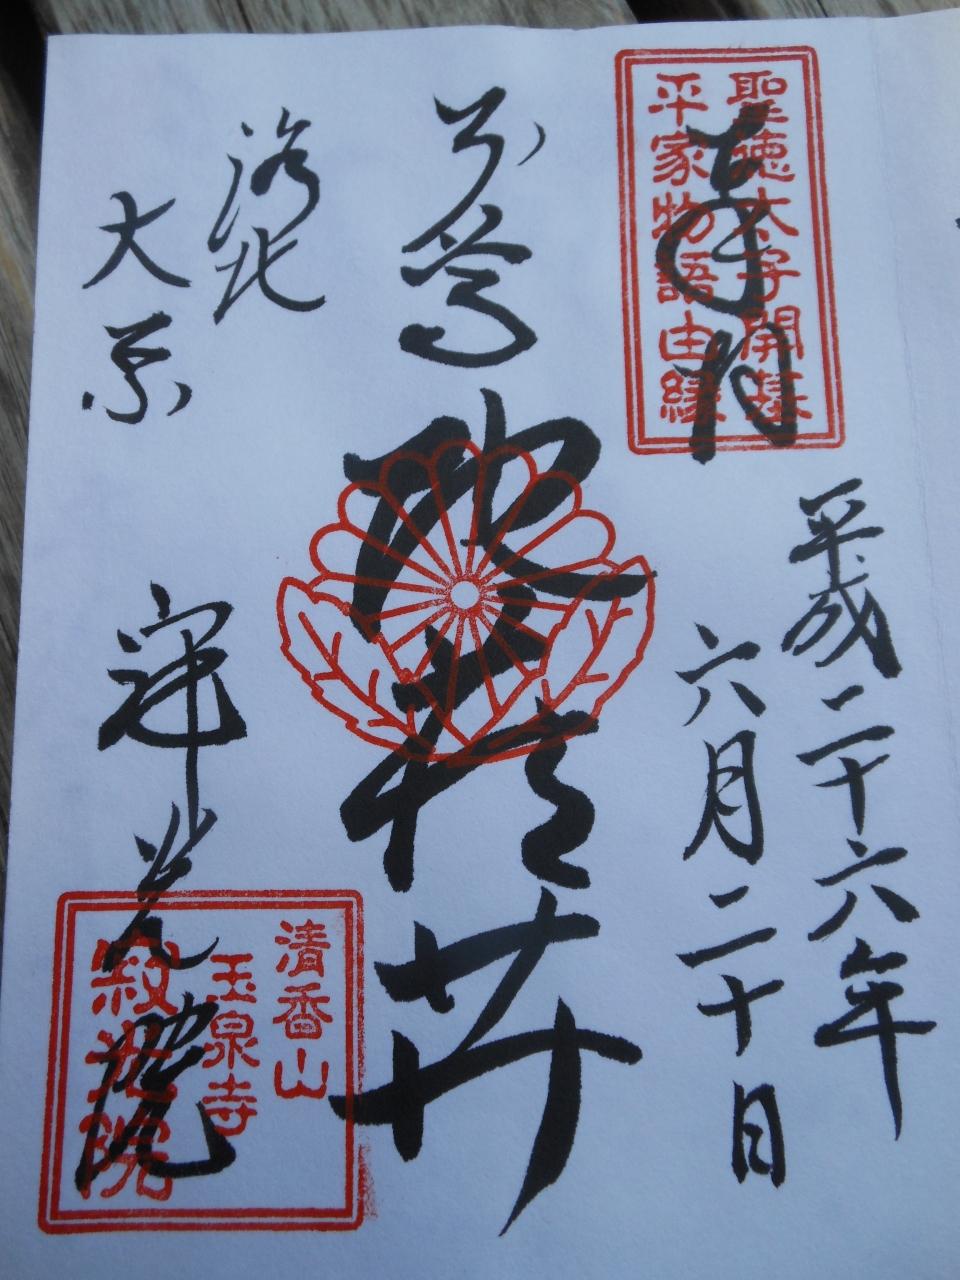 聖徳太子開基
平家物語由縁
奉拝
平成二十六年
六月二十日
本尊
地蔵菩薩
洛北
大原
寂光院
清香山
玉泉寺
寂光院